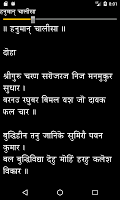 8:01
हनुमान् चालीसा
॥ हनुमान् चालीसा ॥
दोहा
श्रीगुरु चरण सरोजरज निज मनमुकुर
सुधार ।
बरनउ रघुबर बिमल यश जो दायक
फल चार ॥
बुद्धिहीन तनु जानिके सुमिरौ पवन
कुमार ।
बल बुद्धिविद्या देहु मोहिं हरहु कलेश
विकार ॥